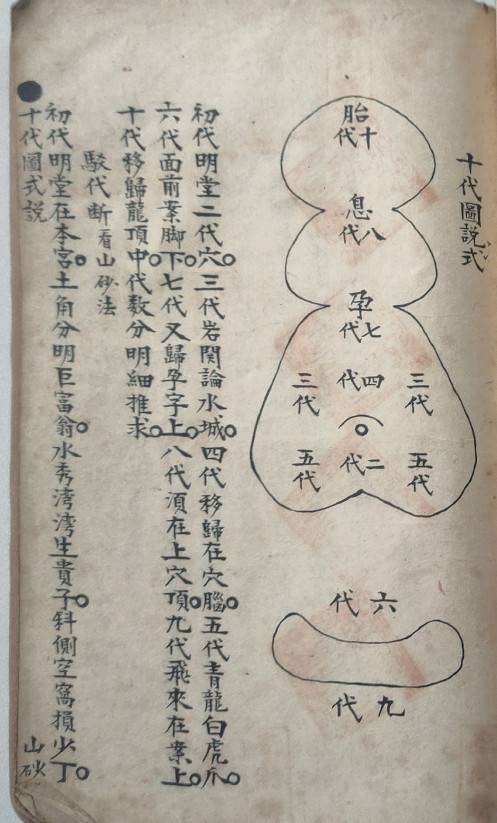 十代圖説式
胎
十代
息
八代
孕
七代
三代
四代
三代
五代
二代
五代
六代
九代
初代明堂二代穴○三代岩関論水城○四代移歸在穴腦○五代青龍白虎爪○
六代面前案脚下○七代又歸孕字上○八代湏在上穴頂○九代飛來在案上○
十代移歸龍頂中○代数分明細推求○
駁代断看山砂法
初代明堂在本宮○土角分明巨富翁○水秀湾湾生貴子○斜側空窩損少丁○
十代圖式説
山砂